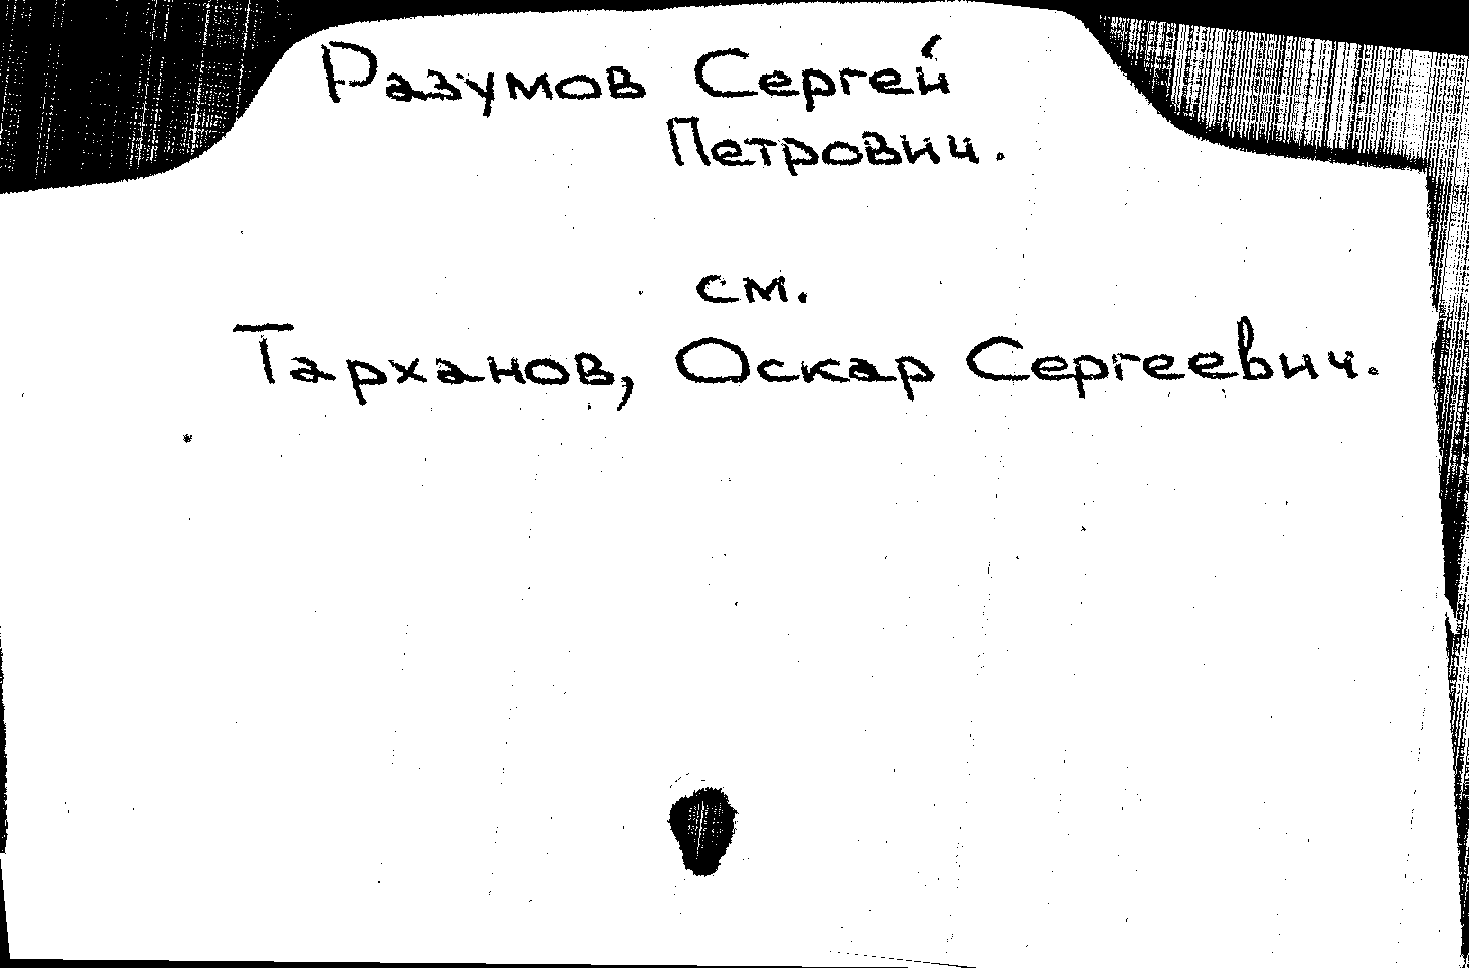 Разумов Сергей
Петрович.
см.
Тарханов, Оскар Сергеевич.